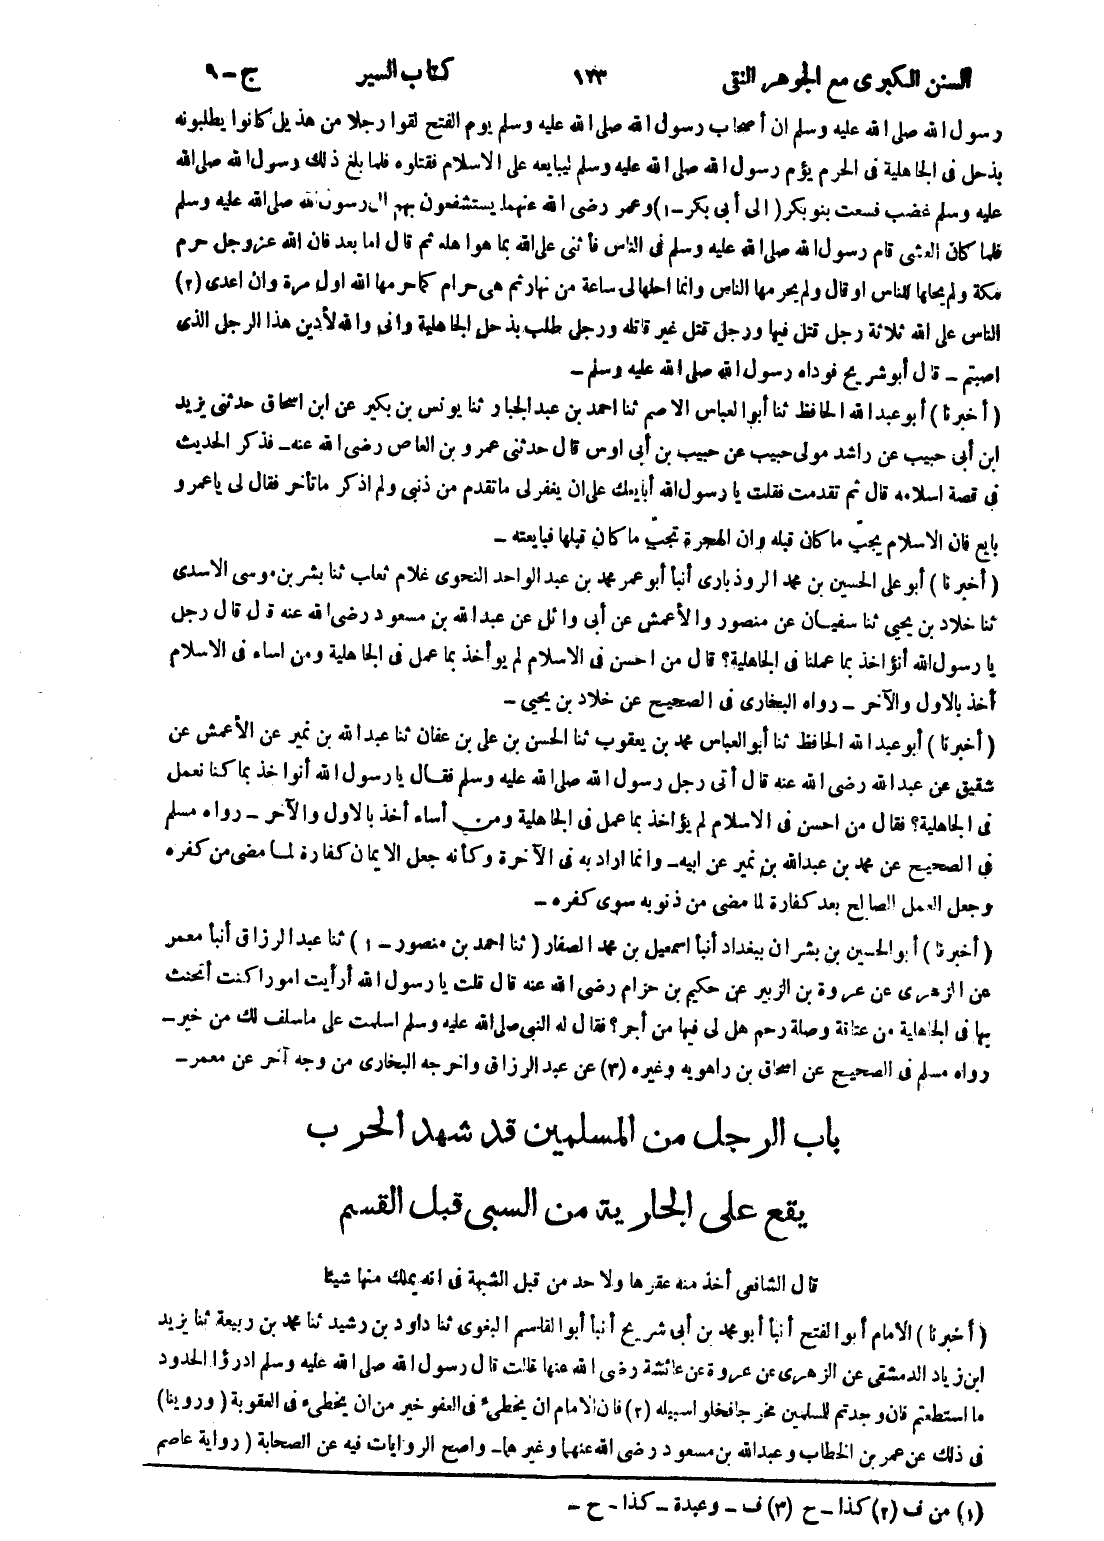 السنن الكبرى مع الجوهر النقى ١٢٣ كتاب السير ج-٩
رسول الله صلى الله عليه وسلم ان أصحاب رسول الله صلى الله عليه وسلم يوم الفتح لقوا رجلا من هذيل كانوا يطلبونه
بذحل فى الجاهلية فى الحرم يؤم رسول الله صلى الله عليه وسلم ليبايعه على الاسلام فقتلوه فلما بلغ ذلك رسول الله صلى الله
عليه وسلم غضب فسعت بنو بكر (الى أبى بكر-١) وعمر رضى الله عنهما يستشفعون بهم الى رسول الله صلى الله عليه وسلم
فلما كان العشى قام رسول الله صلى الله عليه وسلم فى الناس فأثنى على الله بما هو اهله ثم قال اما بعد فان الله عز وجل حرم
مكة ولم يحلها للناس او قال ولم يحرمها الناس وانما احلها لى ساعة من نهار ثم هى حرام كما حرمها الله اول مرة وان اعدى (٢)
الناس على الله ثلاثة رجل قتل فيها ورجل قتل غير قاتله ورجل طلب بذحل الجاهلية وانى والله لأدين هذا الرجل الذى
اصبتم - قال أبو شريح فوداه رسول الله صلى الله عليه وسلم -
(أخبرنا) أبو عبد الله الحافظ ثنا أبو العباس الاصم ثنا احمد بن عبد الجبار ثنا يونس بن بكير عن ابن اسحاق حدثنى يزيد
ابن أبى حبيب عن راشد مولى حبيب عن حبيب بن أبى اوس قال حدثنى عمرو بن العاص رضى الله عنه- فذكر الحديث
فى قصة اسلامه قال ثم تقدمت فقلت يا رسول الله أبايعك على ان يغفر لى ما تقدم من ذنبى ولم اذكر ما تأخر فقال لى يا عمرو
بايع فان الاسلام يجبّ ما كان قبله وان الهجرة تجبّ ما كان قبلها فبايعته -
(أخبرنا) أبو على الحسين بن محمد الروذبارى أنبأ أبو عمر محمد بن عبد الواحد النحوى غلام ثعلب ثنا بشر بن موسى الاسدى
ثنا خلاد بن يحيى ثنا سفيان عن منصور والأعمش عن أبى وائل عن عبد الله بن مسعود رضى الله عنه قال قال رجل
يا رسول الله أنؤاخذ بما عملنا فى الجاهلية؟ قال من احسن فى الاسلام لم يؤاخذ بما عمل فى الجاهلية ومن اساء فى الاسلام
أخذ بالاول والآخر - رواه البخارى فى الصحيح عن خلاد بن يحيى -
(أخبرنا) أبو عبد الله الحافظ ثنا أبو العباس محمد بن يعقوب ثنا الحسن بن على بن عفان ثنا عبد الله بن نمير عن الأعمش عن
شقيق عن عبد الله رضى الله عنه قال أتى رجل رسول الله صلى الله عليه وسلم فقال يا رسول الله أنواخذ بما كنا نعمل
فى الجاهلية؟ فقال من احسن فى الاسلام لم يؤاخذ بما عمل فى الجاهلية ومن أساء أخذ بالاول والآخر - رواه مسلم
فى الصحيح عن محمد بن عبد الله بن نمير عن ابيه- وانما اراد به فى الآخرة وكأنه جعل الايمان كفارة لما مضى من كفره
وجعل العمل الصالح بعد كفارة لما مضى من ذنوبه سوى كفره -
(أخبرنا) أبو الحسين بن بشران ببغداد أنبأ اسمعيل بن محمد الصفار (ثنا احمد بن منصور - ١) ثنا عبد الرزاق أنبأ معمر
عن الزهرى عن عروة بن الزبير عن حكيم بن حزام رضى الله عنه قال قلت يا رسول الله أرأيت امورا كنت أتحنث
بها فى الجاهلية من عتاقة وصلة رحم هل لى فيها من أجر؟ فقال له النبى صلى الله عليه وسلم اسلمت على ما سلف لك من خير-
رواه مسلم فى الصحيح عن اسحاق بن راهويه وغيره (٣) عن عبد الرزاق واخرجه البخارى من وجه آخر عن معمر-
باب الرجل من المسلمين قد شهد الحرب
يقع على الجارية من السبى قبل القسم
قال الشافعى أخذ منه عقرها ولا حد من قبل الشبهة فى انه يملك منها شيئا
(أخبرنا) الامام أبو الفتح أنبأ أبو محمد بن أبى شريح أنبأ أبو القاسم البغوى ثنا داود بن رشيد ثنا محمد بن ربيعة ثنا يزيد
ابن زياد الدمشقى عن الزهرى عن عروة عن عائشة رضى الله عنها قالت قال رسول الله صلى الله عليه وسلم ادرؤا الحدود
ما استطعتم فان وجدتم للمسلمين مخرجا فخلوا سبيله (٢) فان الامام ان يخطىء فى العفو خير من ان يخطىء فى العقوبة (وروينا)
فى ذلك عن عمر بن الخطاب وعبد الله بن مسعود رضى الله عنهما وغيرهما- واصح الروايات فيه عن الصحابة (رواية عاصم
(١) من ف (٢) كذا - ح (٣) ف - وعبدة - كذا - ح -